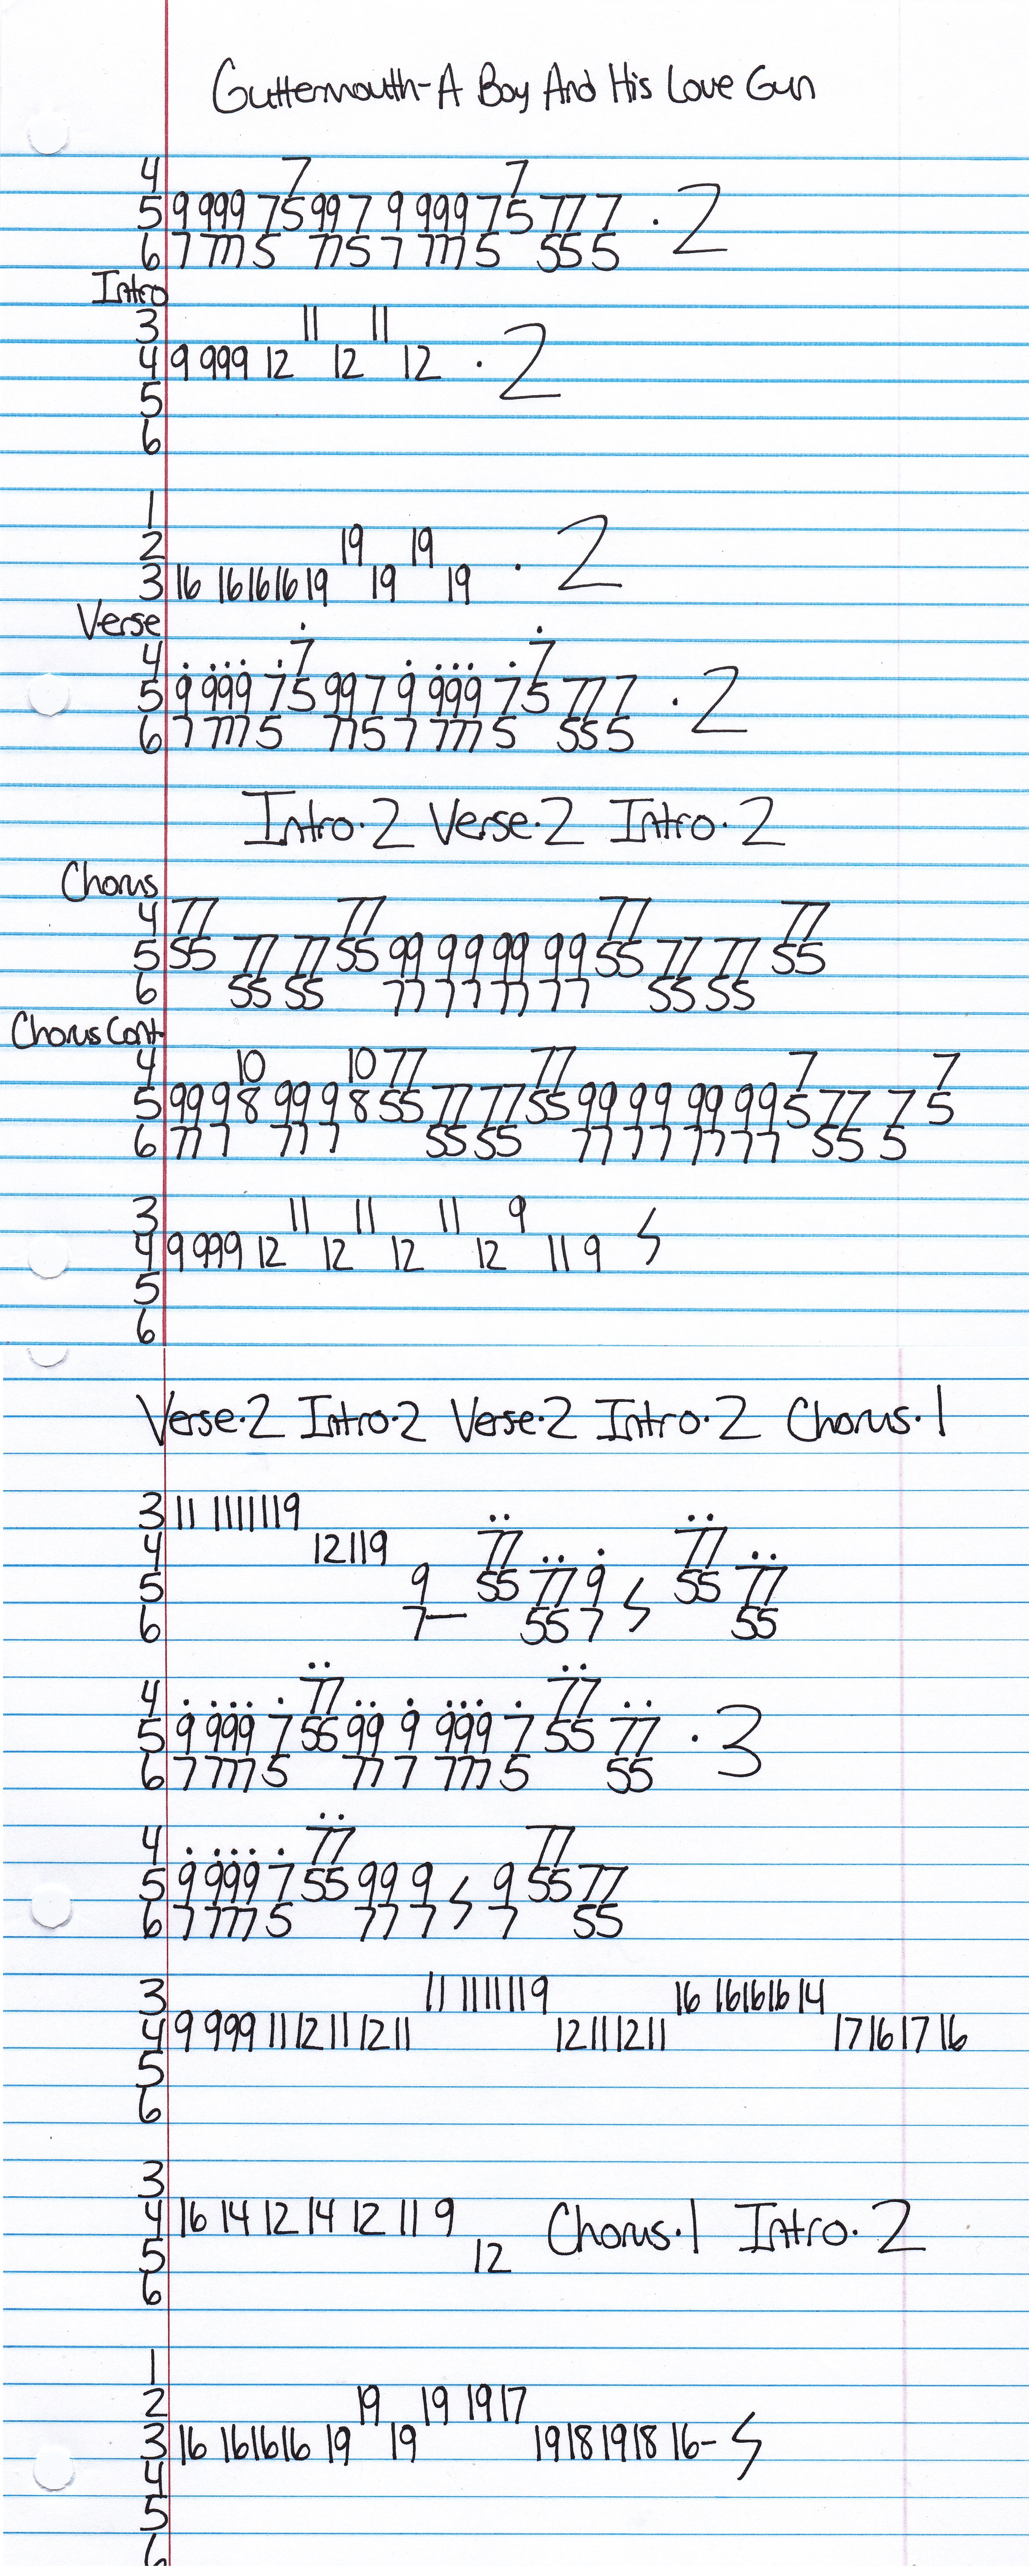 Guttermouth-A Boy And His Love Gun
4 7 7
5 9 999 75997 9 999 75 777 · 2
6 7 777 5 775 7 777 5 555
Intro
3 11 11
4 9 999 12 12 12 · 2
5
6
1
2 19 19
3 16 161616 19 19 19 · 2
Verse
4 . ... . 7 . ... . 7
5 9 999 75 997 9 999 75 777 · 2
6 7 777 5 775 7 777 5 555
Intro·2 Verse·2 Intro·2
Chorus
4 77 77 77 77
5 55 77 77 55 99 99 99 99 55 77 77 55
6 55 55 77 77 77 77 55 55
Chorus Cont.
4 10 10 77 77 7 7
5 99 9 8 99 9 8 55 77 77 55 99 99 99 99 5 77 7 5
6 77 7 77 7 55 55 77 77 77 77 55 5
3 11 11 11 9
4 9 999 12 12 12 12 11 9
5
6
Verse·2 Intro·2 Verse·2 Intro·2 Chorus·1
3 11 111111 9
4 12 11 9 77 77
5 9 55 77 9 55 77
6 7— 55 7 55
4 . ... . 77 .. . ... . 77 ..
5 9 999 7 55 99 9 999 7 55 77 · 3
6 7 777 5 77 7 777 5 55
4 . ... . 77 77
5 9 999 7 55 99 9 9 55 77
6 7 777 5 77 7 7 55
3 11 111111 9 16 161616 14
4 9 999 11 12 11 12 11 12 11 12 11 17 16 17 16
5
6
3
4 16 14 12 14 12 11 9 Chorus·1 Intro·2
5 12
6
1
2 19 19 19 17
3 16 161616 19 19 19 18 19 18 16-
4
5
6